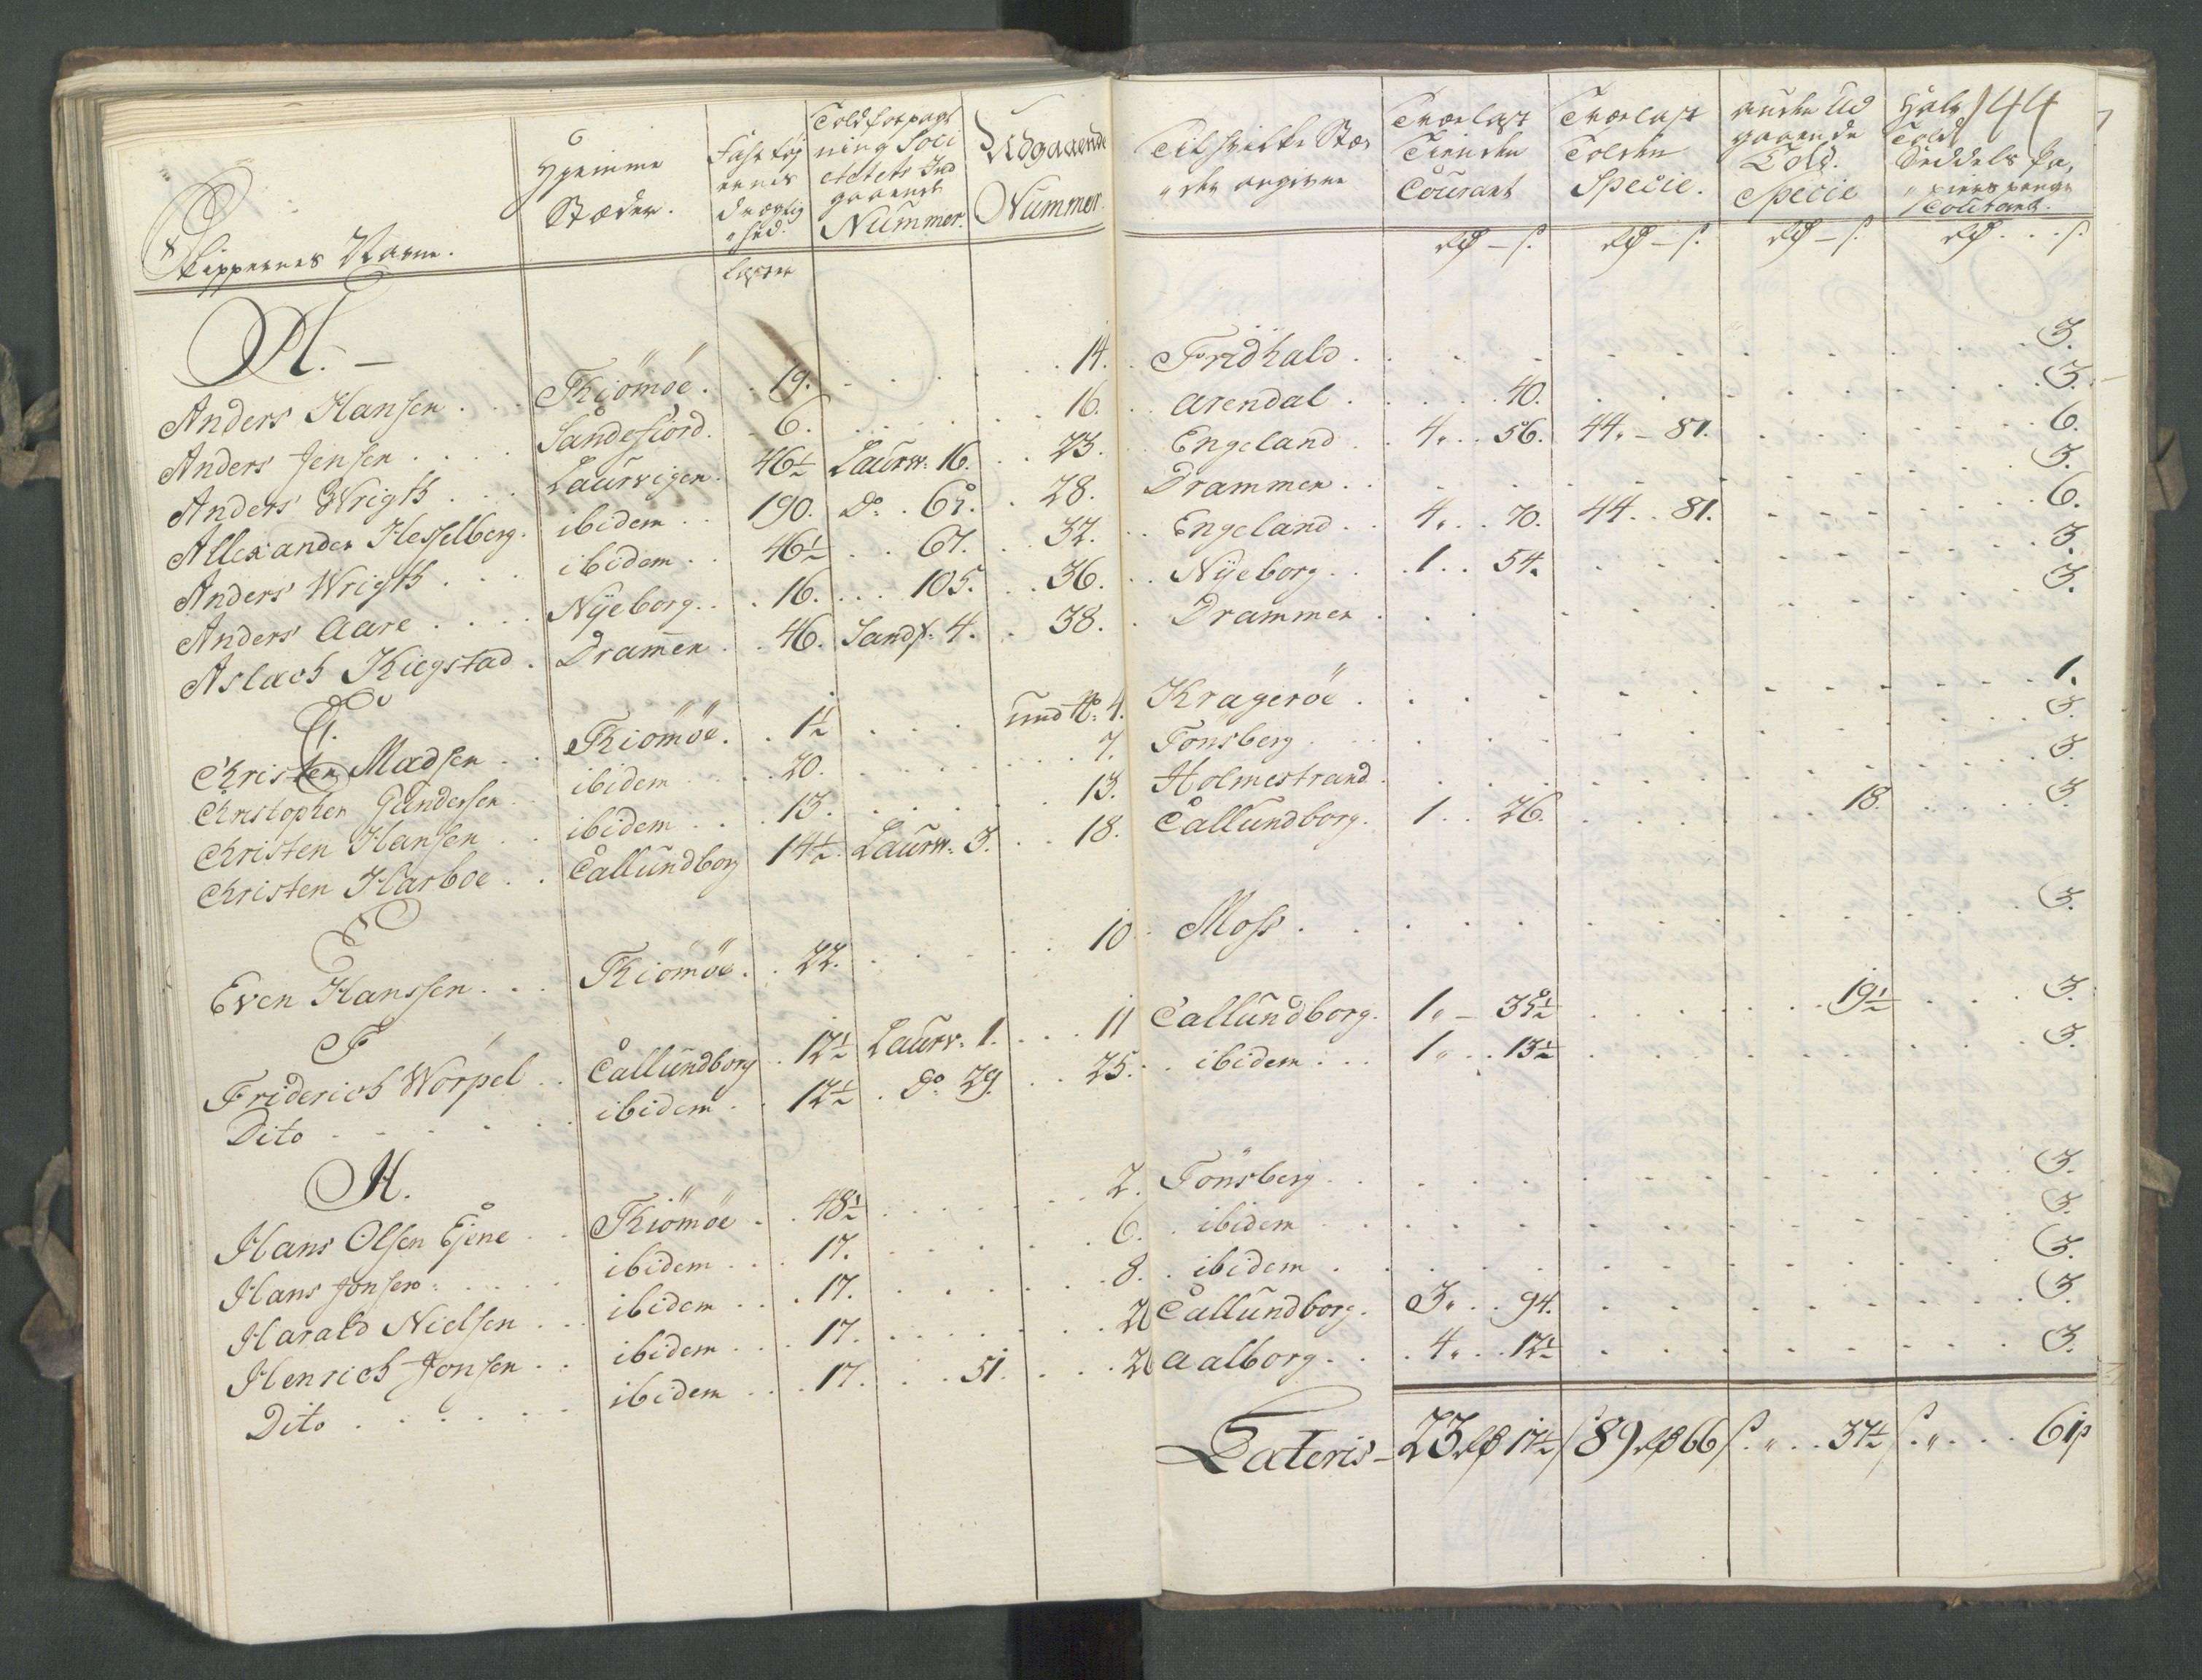 144
Skippernes Navne.
Hjemme Stæder.
Fahrtøjernes Drægtighed. Læster
Toldforpagtning Societetets Indgaaende Nummer.
Udgaaende Nummer.
Til hvilke Stæder angivne
Trælast Tienden Courant
Trælast Tolden Specie.
anden Udgaaende Told. Specie
Told Seddels Papiirs penge Courant.
rd – s. rd – s. rd – s. rd . . . s.
A. –
Anders Hansen . . Thiömöe . . 19. . . . . 14. Fridhald . . . . . 3.
Anders Jensen . . . Sandefiord. - 6. . . . . 16. Arendal . . . 40. . . . . 3.
Anders Wrigth . . . Laurvigen. 46½ Laurw: 16. . . 23. Engeland . . 4" . . 56. 44" – 81. . . . 6.
Allexander Hesselberg. ibidem . . 190. do. . 62. . 28. Drammen . . . . . 3.
Anders Wrigth . . . ibidem . . 46½ . . 67. . 32. Engeland . . 4" . . 70. 44. . 81. . . . 6.
Anders Aare . . . . Nÿeborg . . 16. . . . 105. . . 36. Nÿeborg . . 1 . . 54. . . . 3.
Aslach Kiegstad . Dramen . . 46. Sandf: 4. . 38. Drammen . . . . . 3.
C.
Christen Madsen . . Thiömöe . . 1½ . . . und No. 4. Krageröe . . . . . 1.
Christopher Gundersen . ibidem . . . 20. . . . . 7. Tonsberg . . . . . 3.
Christen Hansen . . ibidem . . . 13. . . . . 13. Holmestrand . . . . . 3.
Christen Harboe . . Callundborg 14½ Laurw: 3. . . 18. Callundborg. 1 . . 26. . . . 18. . . . 3.
E
Even Hanssen . . . Thiomöe . . 22. . . . . 10 Moss . . . . . 3.
F
Friderich Worpel . . Callundborg . 12½ Laurv. 1. . . . 11 Callundborg. 1" – 35½ . . . 19½ . . . 3.
Dito . . . . . ibidem . . 12½ . do. 29. . . 25. ibidem . . . 1" . . 13½ . . . 3.
H.
Hans Olsen Ejene . . Thiömöe . . 48½ . . . . 2. Tönsberg . . . . . 3.
Hans Jonsen . . . . ibidem . . . 17. . . . . 6. ibidem . . . . . 3.
Harald Nielsen . . . ibidem . . . 17. . . . . 8. ibidem . . . . . 3.
Henrich Jonsen . . ibidem . . . 17. . . . . 2 Callundborg. 3" . . 94. . . . 3.
Dito . . . . . ibidem . . . 17. . . 51. . . . 2 Aalborg . . . 4" . . 12½ . . . 3.
Lateris – 23 rd 17½ s 89 rd 66 s. " . . 37½ s. " . . . 61 s